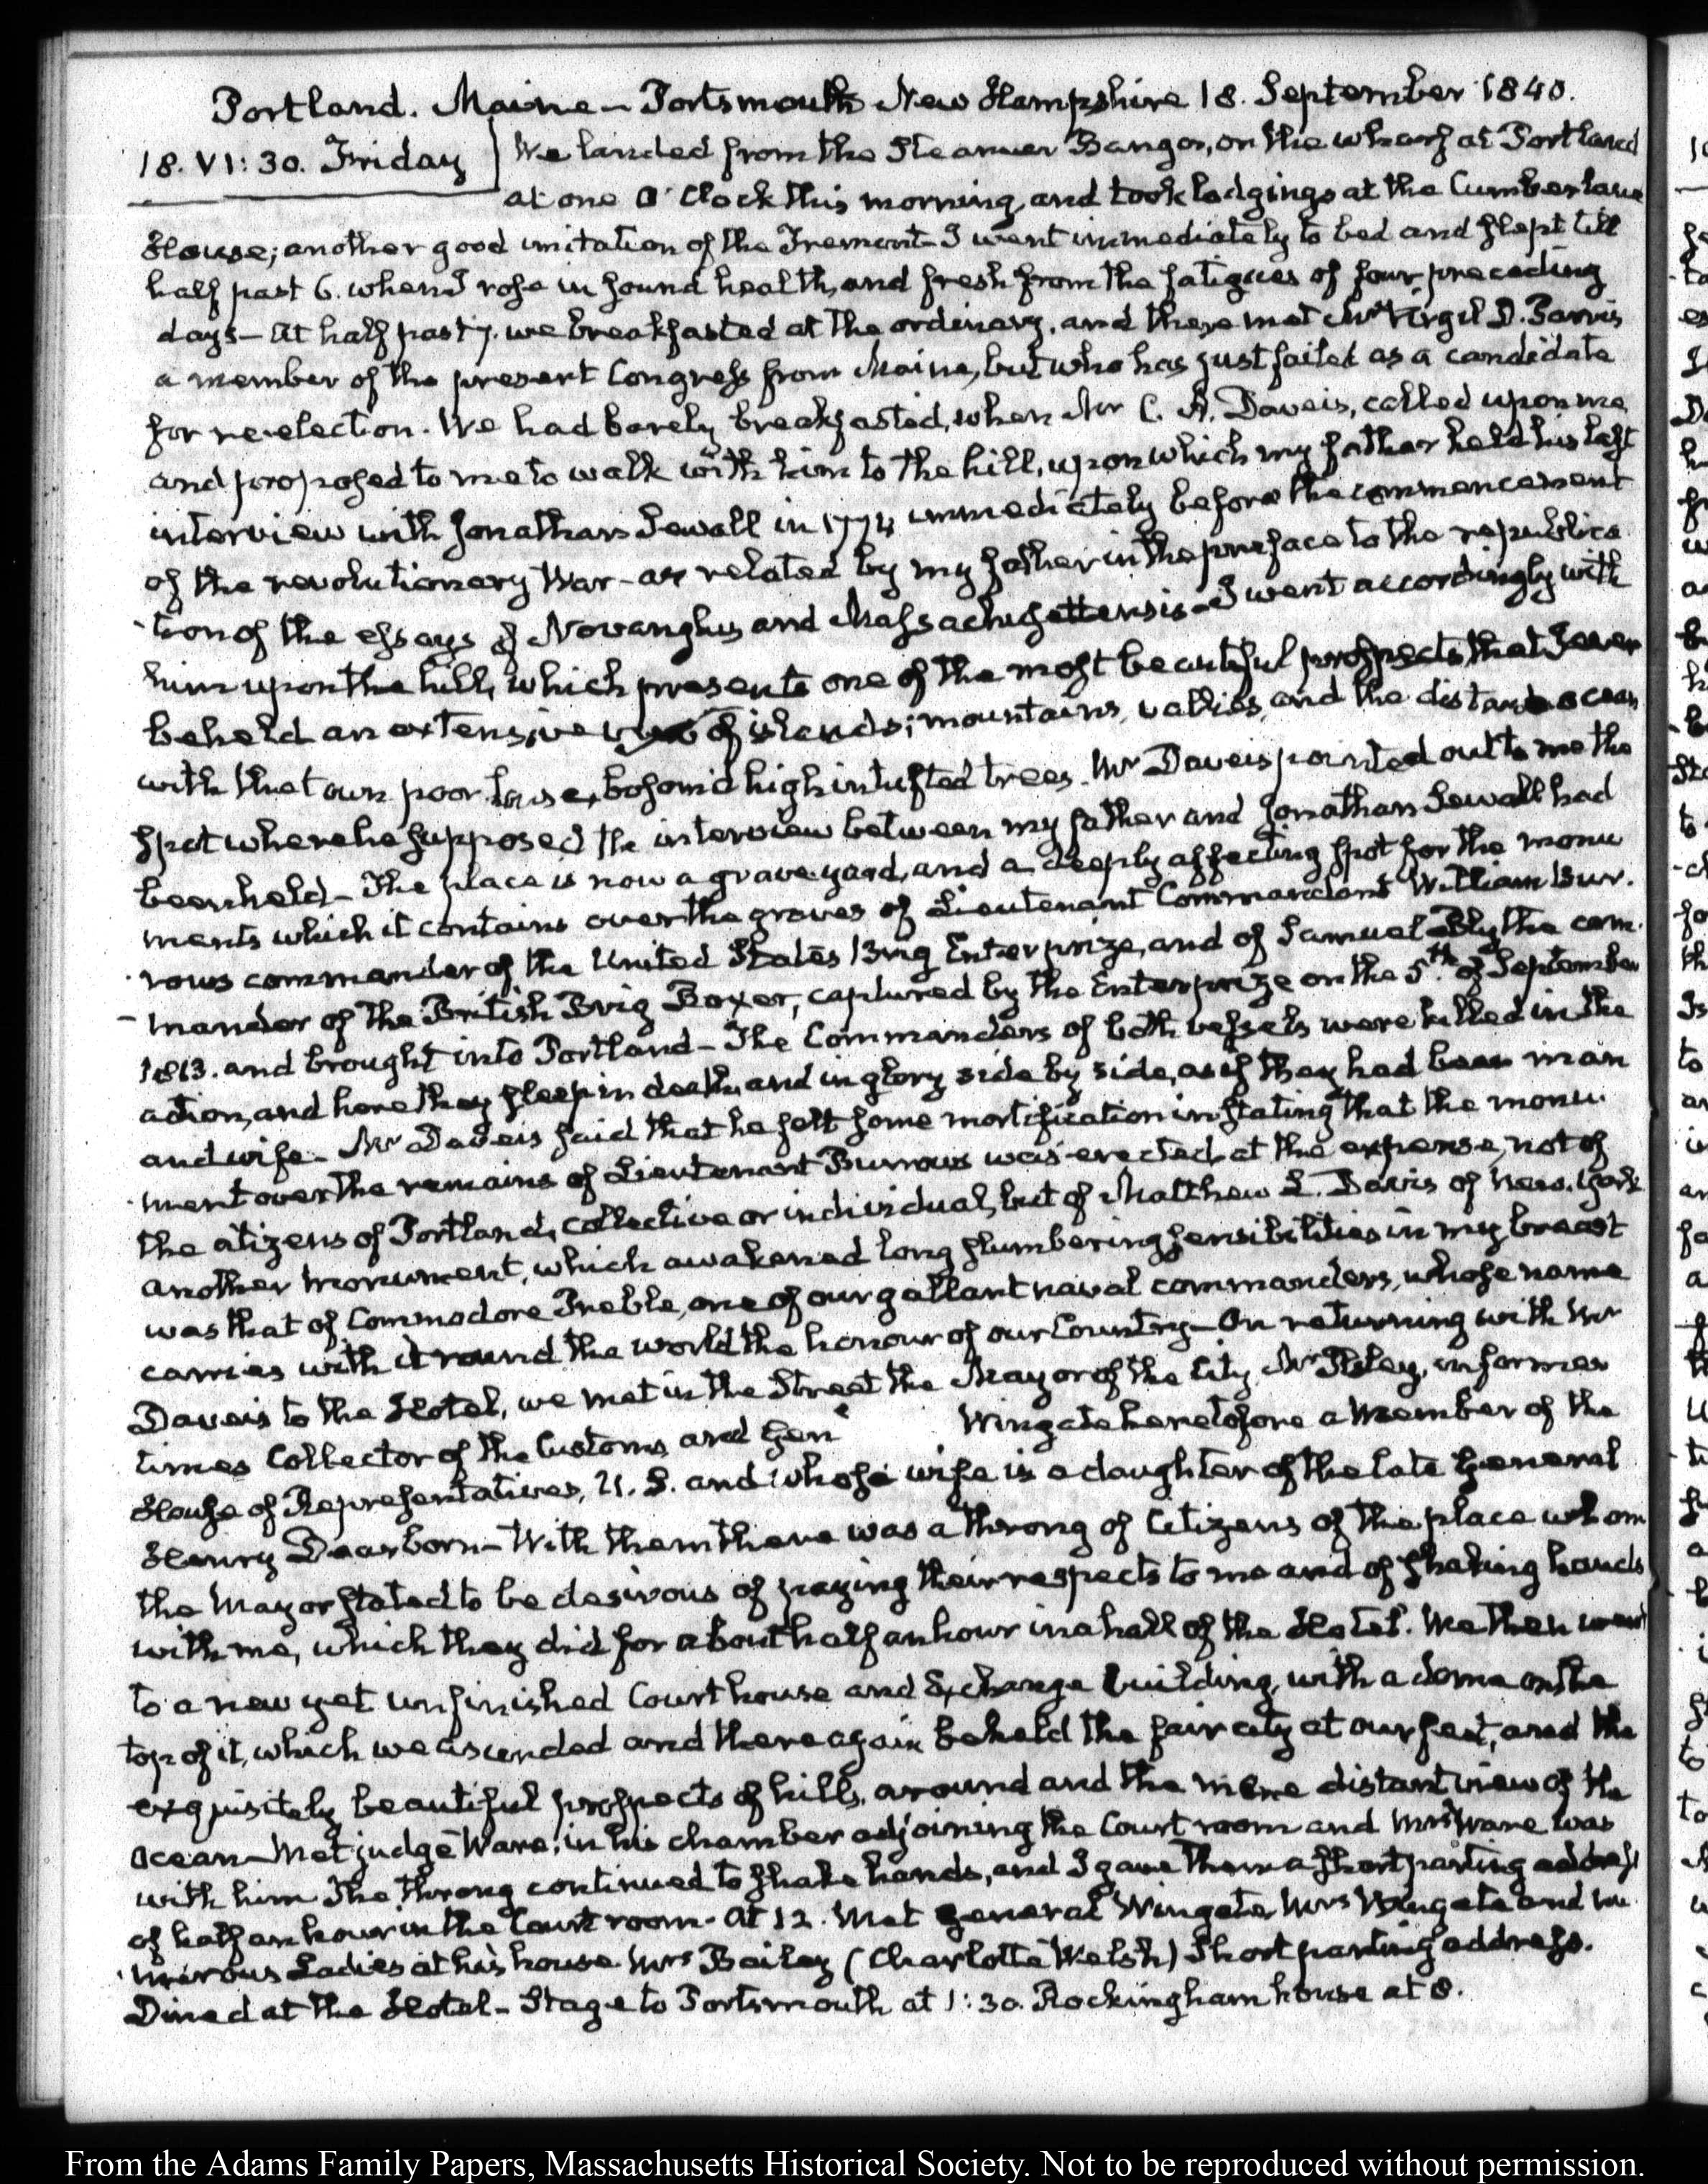 Portland. Maine – Portsmouth New Hampshire 18. September 1840.
18. VI: 30. Friday We landed from the Steamer Bangor, on the wharf at Portland
at one o'clock this morning, and took lodgings at the Cumberland
House; another good imitation of the Tremont – I went immediately to bed and slept till
half past 6. when I rose in sound health, and fresh from the fatigues of four preceding
days – At half past 7. we breakfasted at the ordinary, and there met Mr Virgil D. Parris
a member of the present Congress from Maine, but who has just failed as a candidate
for re-election. We had barely breakfasted, when Mr C. S. Daveis, called upon me
and proposed to me to walk with him to the hill, upon which my father held his last
interview with Jonathan Sewall in 1774 immediately before the commencement
of the revolutionary War – as related by my father in the preface to the republica
tion of the essays of Novanglus and Massachusettensis – I went accordingly with
him upon the hill, which presents one of the most beautiful prospects that I ever
beheld an extensive view of islands; mountains, vallies, and the distant ocean
with the town bosom'd high in tufted trees. Mr Daveis pointed out to me the
spot where he supposed the interview between my father and Jonathan Sewall had
been held – The place is now a grave yard, and a deeply affecting spot for the monu
ments which it contains over the graves of Lieutenant Commandant William Bur.
rows commander of the United States Brig Enterprize, and of Samuel Bly the com.
mander of the British Brig Boxer, captured by the Enterprize on the 5th of September
1813. and brought into Portland – The Commanders of both vessels were killed in the
action, and here they sleep in death, and in glory side by side, as if they had been man
and wife – Mr Daveis said that he felt some mortification in stating that the monu.
ment over the remains of Lieutenant Burrows was erected at the expense, not of
the citizens of Portland, collective or individual, but of Matthew L. Davis of New. York
another monument, which awakened long slumbering sensibilities in my breast
was that of Commodore Preble, one of our gallant naval commanders, whose name
carries with it round the world the honour of our Country – On returning with Mr
Daveis to the Hotel, we met in the Street the Mayor of the City, Mr in former
times Collector of the Customs and Genl Wingate heretofore a Member of the
House of Representatives, U.S. and whose wife is a daughter of the late General
Henry Dearborn – With them there was a throng of Citizens of the place whom
the Mayor stated to be desirous of paying their respects to me and of shaking hands
with me, which they did for about half an hour in a hall of the Hotel. We then went
to a new yet unfinished Court house and Exchange building, with a dome on the
top of it, which we ascended and there again beheld the fair city at our feet, and the
exquisitely beautiful prospects of hills, around and the more distant view of the
ocean – Met judge Ware, in his chamber adjoining the Court room and Mrs Ware was
with him The throng continued to shake hands, and I gave them a short parting address
of half an hour in the Court room. At 12. Met General Wingate, Mrs Wingate and nu
merous Ladies at his house Mrs Bailey (Charlotte Welsh) Short parting address.
Dined at the Hotel – Stage to Portsmouth at 1:30. Rockingham house at 8.
From the Adams Family Papers, Massachusetts Historical Society. Not to be reproduced without permission.